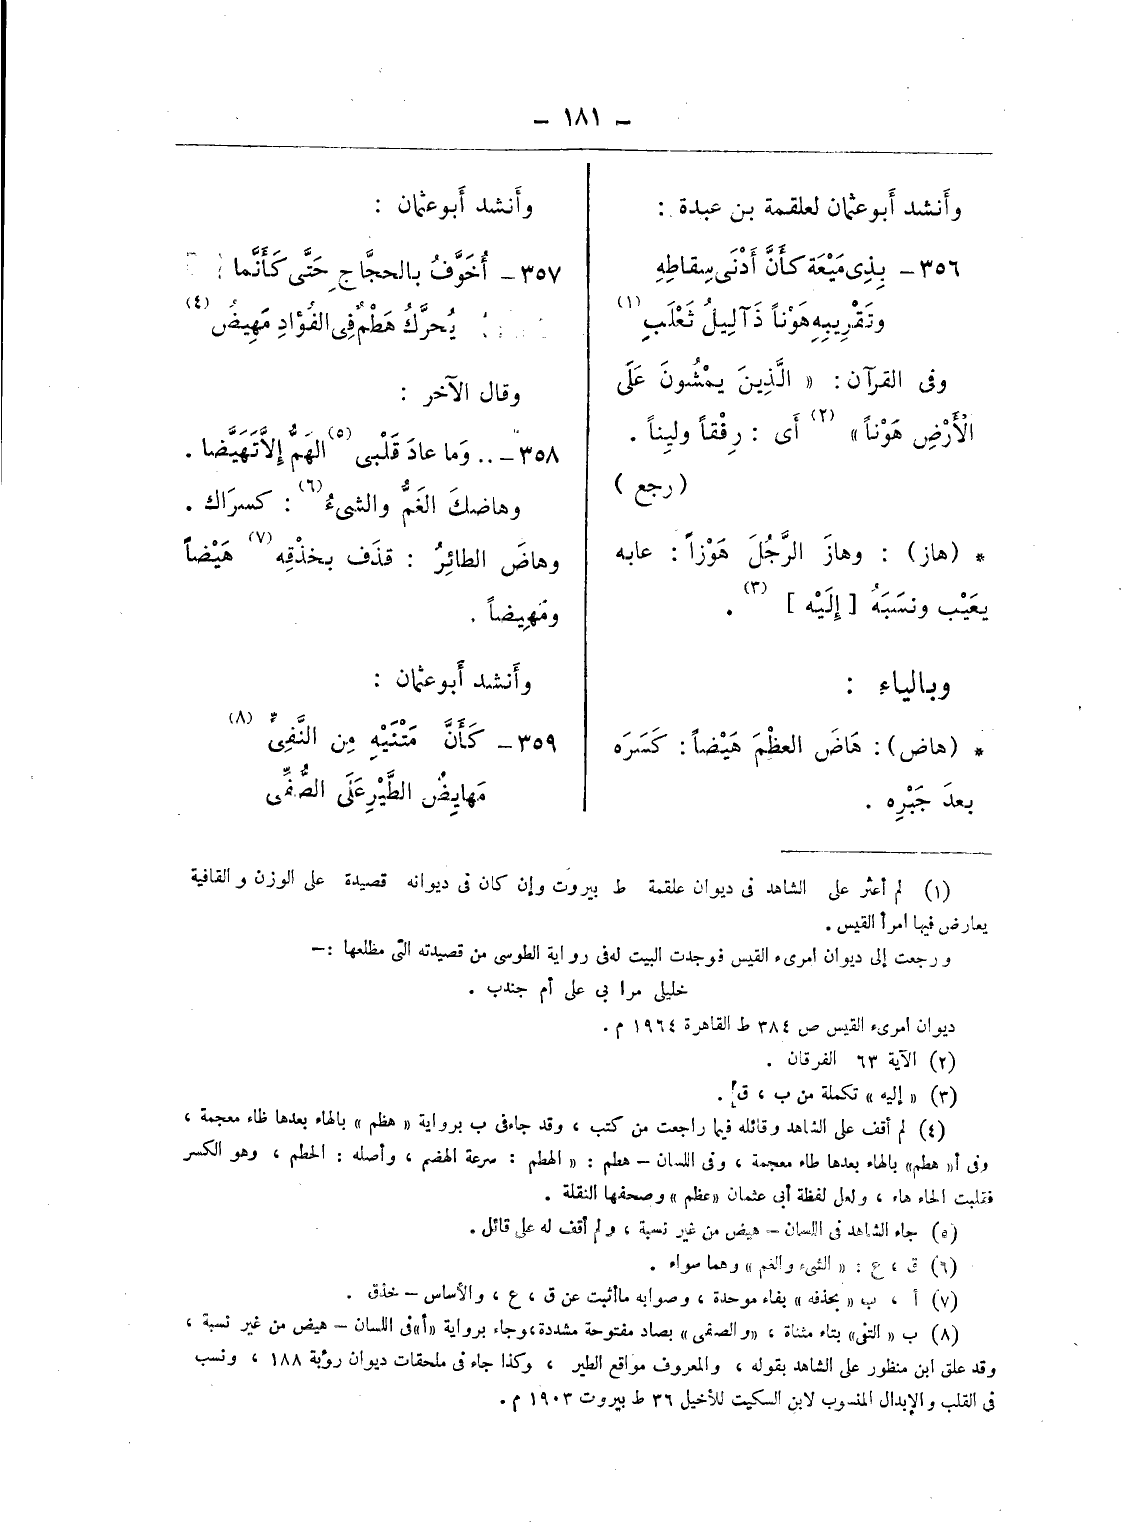 – ١٨١ –
وأنشد أبو عثمان لعلقمة بن عبدة :
٣٥٦ – بِذِى مَيْعَة كأَنَّ أَدْنَى سِقاطِهِ
وتَقْرِيبِهِ هَوْناً ذَآلِيلُ ثَعْلَبِ (١)
وفى القرآن : « الَّذِينَ يمْشُونَ عَلَى
الْأَرْضِ هَوْناً » (٢) أَى : رِفْقاً ولِيناً .
( رجع )
* (هاز) : وهازَ الرَّجُلَ هَوْزاً : عابه
يعَيْب ونسَبَهُ [ إِلَيْه ] (٣) .
وبالياء :
* (هاض) : هَاضَ العظْمَ هَيْضاً : كَسَرَه
بعدَ جَبْرِه .
وأَنشد أَبو عثمان :
٣٥٧ – أُخَوَّفُ بالحجَّاجِ حَتَّى كَأَنَّما
يُحرَّكُ هَطْمٌ فِى الفُؤادِ مَهِيضُ (٤)
وقال الآخر :
٣٥٨ – .. وَما عادَ قَلْبى (٥) الهَمُّ إِلاَّ تَهَيَّضا .
وهاضكَ الغَمُّ والشىءُ (٦) : كسرَاك .
وهاضَ الطائِرُ : قذَف بخذْقِه (٧) هَيْضاً
ومَهِيضاً .
وأَنشد أَبو عثمان :
٣٥٩ – كَأَنَّ مَتْنَيْهِ مِن النَّفِىِّ (٨)
مَهايِضُ الطَّيْرِ عَلَى الصُّفِّى
(١) لم أعثر على الشاهد فى ديوان علقمة ط بيروت وإن كان فى ديوانه قصيدة على الوزن والقافية
يعارض فيها امرأ القيس .
ورجعت إلى ديوان امرىء القيس فوجدت البيت له فى رواية الطوسى من قصيدته التى مطلعها :–
خليلى مرا بى على أم جندب .
ديوان امرىء القيس ص ٣٨٤ ط القاهرة ١٩٦٤ م .
(٢) الآية ٦٣ الفرقان .
(٣) « إليه » تكملة من ب ، ق .
(٤) لم أقف على الشاهد وقائله فيما راجعت من كتب ، وقد جاء فى ب برواية « هظم » بالهاء بعدها ظاء معجمة ،
وفى أ « هطم» بالهاء بعدها طاء معجمة ، وفى اللسان – هطم : « الهطم : سرعة الهضم ، وأصله : الحطم ، وهو الكسر
فقلبت الحاء هاء ، ولعل لفظة أبى عثمان «عظم » وصحفها النقلة .
(٥) جاء الشاهد فى اللسان – هيض من غير نسبة ، ولم أقف له على قائل .
(٦) ق ، ع : « الشىء والغم » وهما سواء .
(٧) أ ، ب « بحذفه » بفاء موحدة ، وصوابه ما أثبت عن ق ، ع ، والأساس – خذق .
(٨) ب « التفى» بتاء مثناة ، «والصفى » بصاد مفتوحة مشددة ، وجاء برواية «أ» فى اللسان – هيض من غير نسبة ،
وقد علق ابن منظور على الشاهد بقوله ، والمعروف مواقع الطير ، وكذا جاء فى ملحقات ديوان رؤبة ١٨٨ ، ونسب
فى القلب والإبدال المنسوب لابن السكيت للأخيل ٣٦ ط بيروت ١٩٠٣ م .